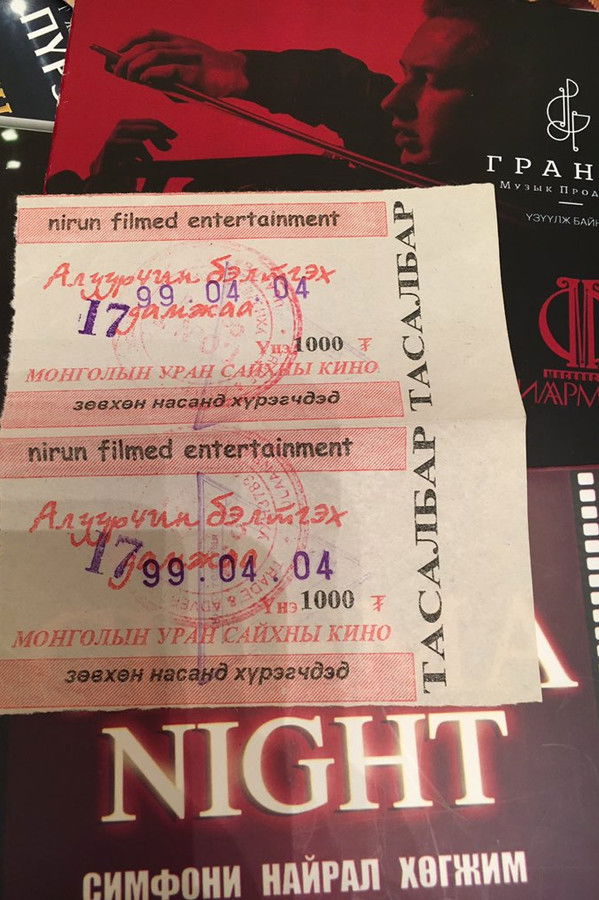 ПҮРЭ
ГРАН
Музык Прод
ҮЗҮҮЛЖ БАЙН
nirun filmed entertainment
Алуурчин бэлтгэх
99.04.04
17 дамжаа
Үнэ 1000 ₮
МОНГОЛЫН УРАН САЙХНЫ КИНО
зөвхөн насанд хүрэгчдэд
ТАСАЛБАР
nirun filmed entertainment
Алуурчин бэлтгэх
17 дамжаа 99.04.04
TRADE & ADVER
Үнэ 1000 ₮
МОНГОЛЫН УРАН САЙХНЫ КИНО
зөвхөн насанд хүрэгчдэд
ТАСАЛБАР
A
NIGHT
СИМФОНИ НАЙРАЛ ХӨГЖИМ